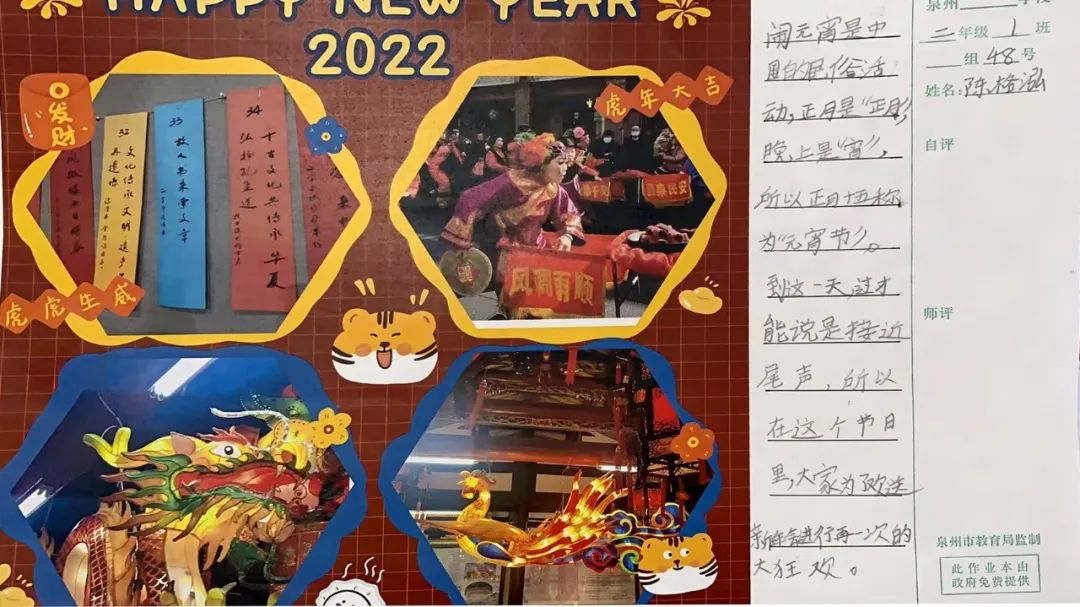 HAPPY NEW YEAR
2022
发财
虎年大吉
虎虎生威
32
33 故人书来索文章
34 十古文化共传承 华夏
弘扬孔孟道
风调雨顺
国泰民安
闹元宵是中
国的民俗活
动，正月是“正月”，
晚上是“宵”，
所以正月十五称
为“元宵节”。
到这一天，过才
能说是接近
尾声，所以
在这个节日
里，大家为了欢送
新年会进行再一次的
大狂欢。
泉州
二年级 1 班
组 48 号
姓名：陈格泓
自评
师评
泉州市教育局监制
此作业本由
政府免费提供